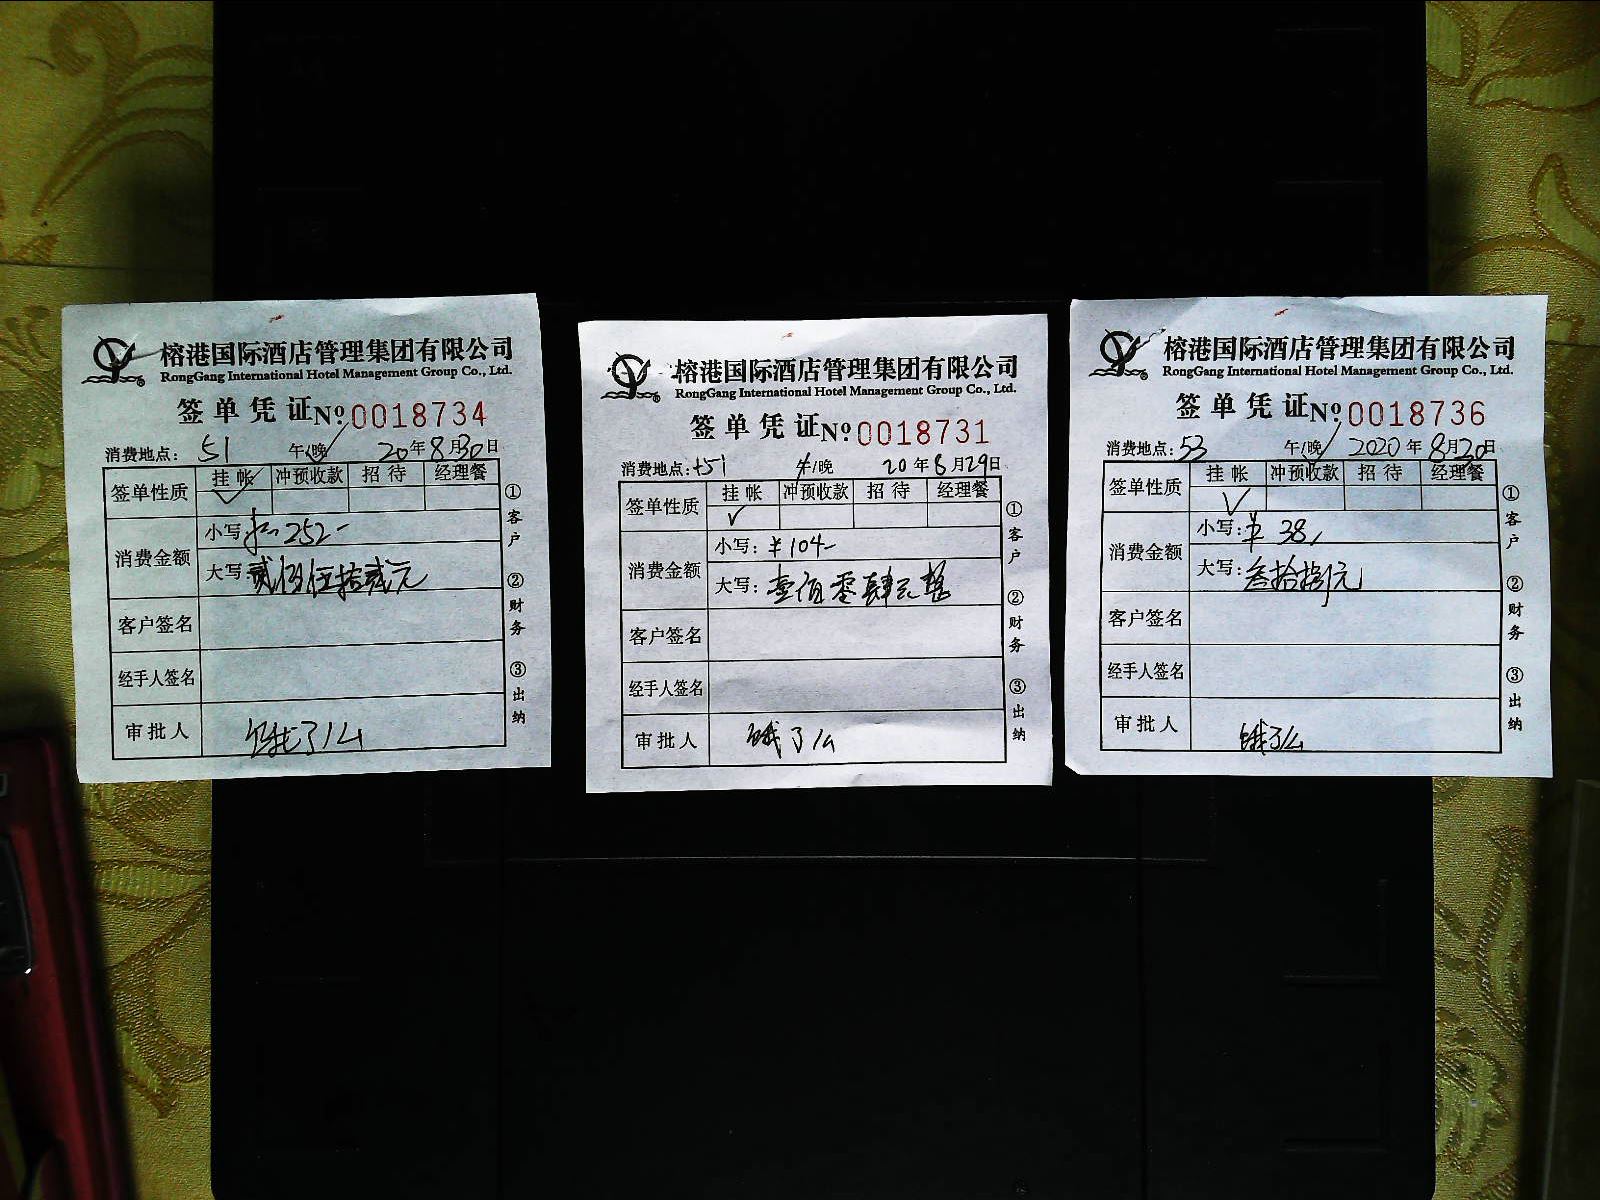 榕港国际酒店管理集团有限公司
RongGang International Hotel Management Group Co., Ltd.
签单凭证 №0018734
消费地点: 51 午/晚 20年8月30日
签单性质 挂帐 冲预收款 招待 经理餐
消费金额
小写: 252-
大写: 贰佰伍拾贰元
客户签名
经手人签名
审批人 饿了么
①客户 ②财务 ③出纳
榕港国际酒店管理集团有限公司
RongGang International Hotel Management Group Co., Ltd.
签单凭证 №0018731
消费地点: +51 午/晚 20年8月29日
签单性质 挂帐 冲预收款 招待 经理餐
消费金额
小写: ¥104-
大写: 壹佰零肆元整
客户签名
经手人签名
审批人 饿了么
①客户 ②财务 ③出纳
榕港国际酒店管理集团有限公司
RongGang International Hotel Management Group Co., Ltd.
签单凭证 №0018736
消费地点: 53 午/晚 2020年8月30日
签单性质 挂帐 冲预收款 招待 经理餐
消费金额
小写: ¥38,
大写: 叁拾捌元
客户签名
经手人签名
审批人 饿了么
①客户 ②财务 ③出纳